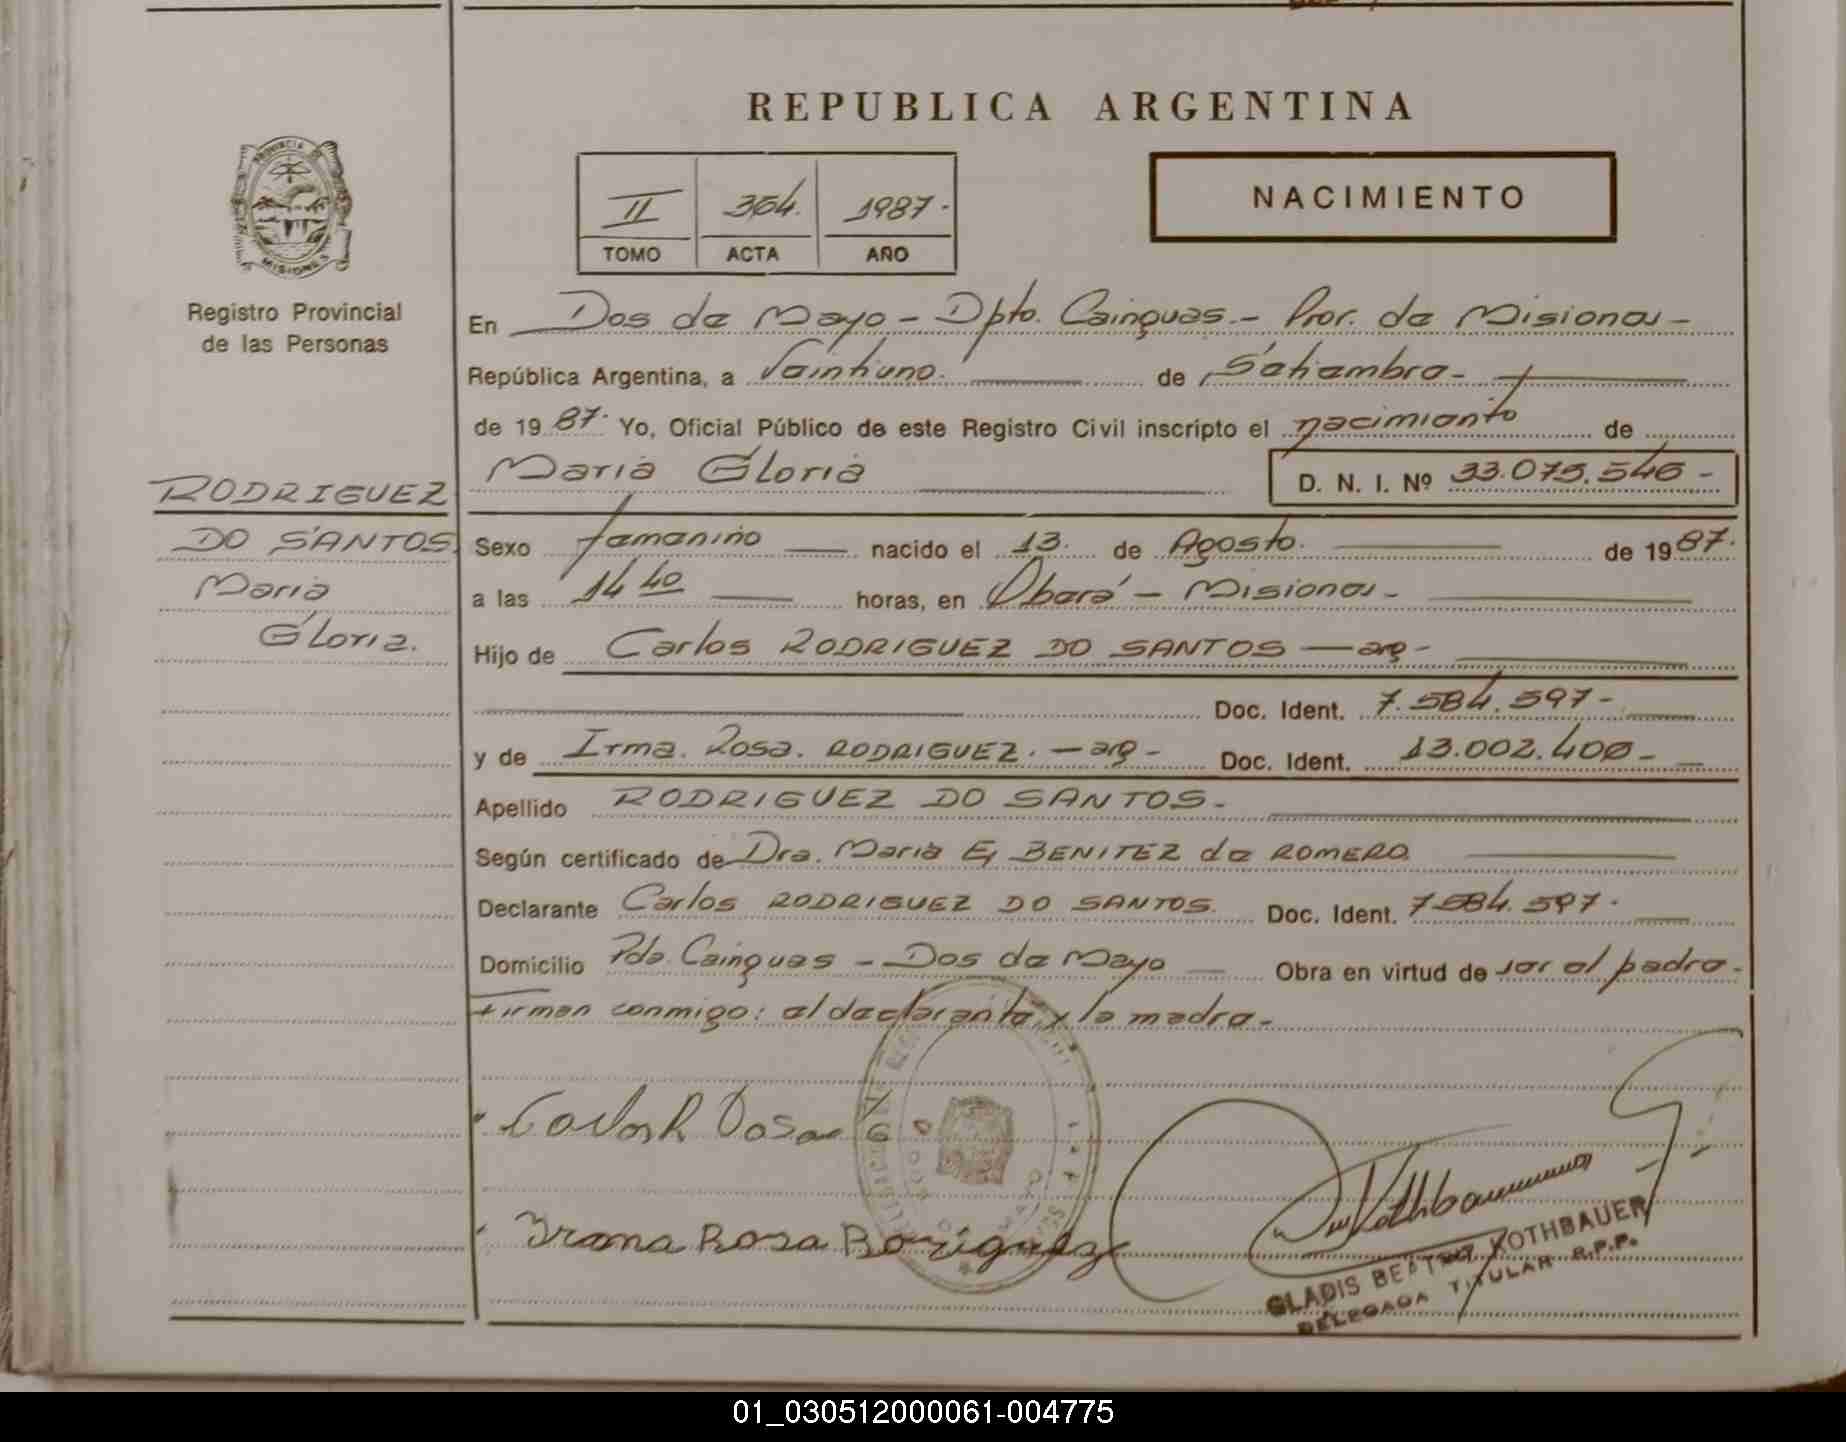 REPUBLICA ARGENTINA
PROVINCIA DE
MISIONES
II 364. 1987.
TOMO ACTA AÑO
NACIMIENTO
Registro Provincial
de las Personas
En Dos de Mayo - Dpto. Cainguas - Prov. de Misiones -
República Argentina, a Veintiuno. de Setiembre -
de 19 87. Yo, Oficial Público de este Registro Civil inscripto el nacimiento de
Maria Gloria D. N. I. Nº 33.075.546 -
RODRIGUEZ
DO SANTOS
Maria
Gloria.
Sexo femenino nacido el 13. de Agosto. de 19 87.
a las 14 40 horas, en Oberá - Misiones -
Hijo de Carlos RODRIGUEZ DO SANTOS - arg -
Doc. Ident. 7.584.597 -
y de Irma. Rosa. RODRIGUEZ. - arg - Doc. Ident. 13.002.400 -
Apellido RODRIGUEZ DO SANTOS -
Según certificado de Dra. Maria E, BENITEZ de ROMERO
Declarante Carlos RODRIGUEZ DO SANTOS. Doc. Ident. 7.584.597.
Domicilio Pdo. Cainguas - Dos de Mayo Obra en virtud de ser el padre -
firman conmigo: el declarante y la madre -
Irma Rosa Rodriguez
GLADIS BEATRIZ KOTHBAUER
DELEGADA TITULAR R.P.P.
01_030512000061-004775